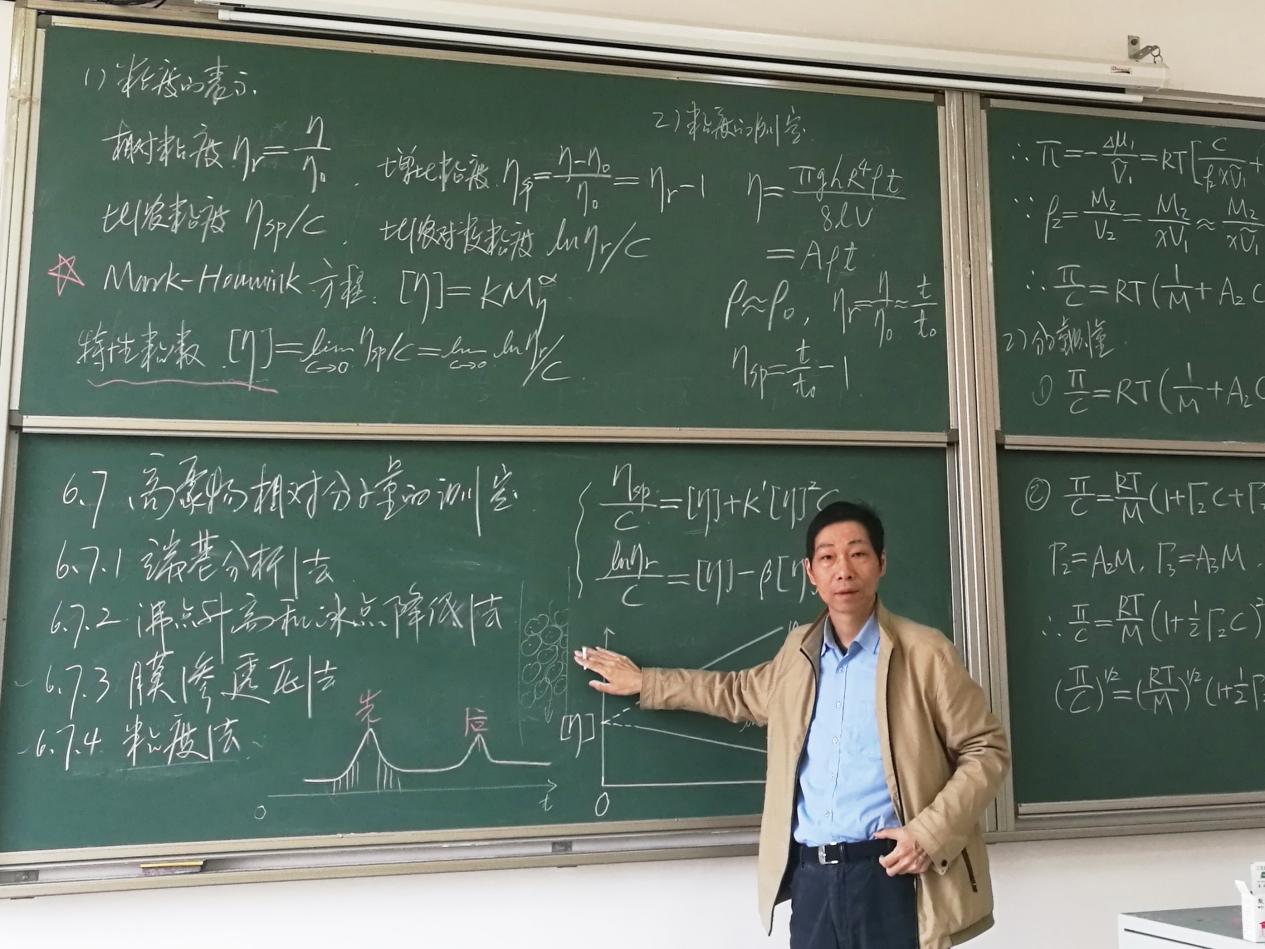 1) 粘度的表示
相对粘度 ηr = η/η0 , 增比粘度 ηsp = (η-η0)/η0 = ηr-1
比浓粘度 ηsp/C , 比浓对数粘度 lnηr/C
☆ Mark-Houwink 方程. [η] = KMη^α
特性粘数 [η] = lim C→0 ηsp/C = lim C→0 lnηr/C
2) 粘度的测定
η = πghR⁴ρt/8lV
= Aρt
ρ≈ρ0, ηr = η/η0 ≈ t/t0
ηsp = t/t0 - 1
∴ π = -Δμ1/Ṽ1 = RT[C/ρ2xṼ1 +
∵ ρ2 = M2/V2 = M2/xṼ1 ≈ M2/xṼ1
∴ π/C = RT(1/M + A2 C
2) 分子量测量
① π/C = RT(1/M + A2C
6.7 高聚物相对分子量的测定
6.7.1 端基分析法
6.7.2 沸点升高和冰点降低法
6.7.3 膜渗透压法
6.7.4 粘度法
先 后
0 t
ηsp/C = [η] + K'[η]²C
lnηr/C = [η] - β[η
[η]
0
② π/C = RT/M (1+Γ2C+Γ
Γ2 = A2M, Γ3 = A3M
∴ π/C = RT/M (1+½Γ2C)²
(π/C)^1/2 = (RT/M)^1/2 (1+½Γ